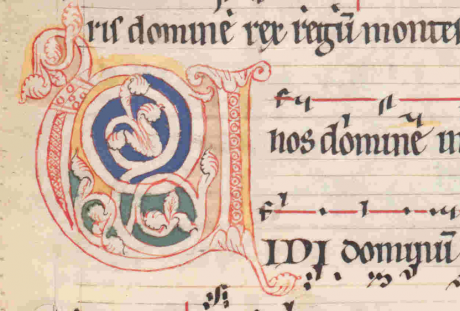 ris dominē rex regū montes
nos dominē in
IDI dominū